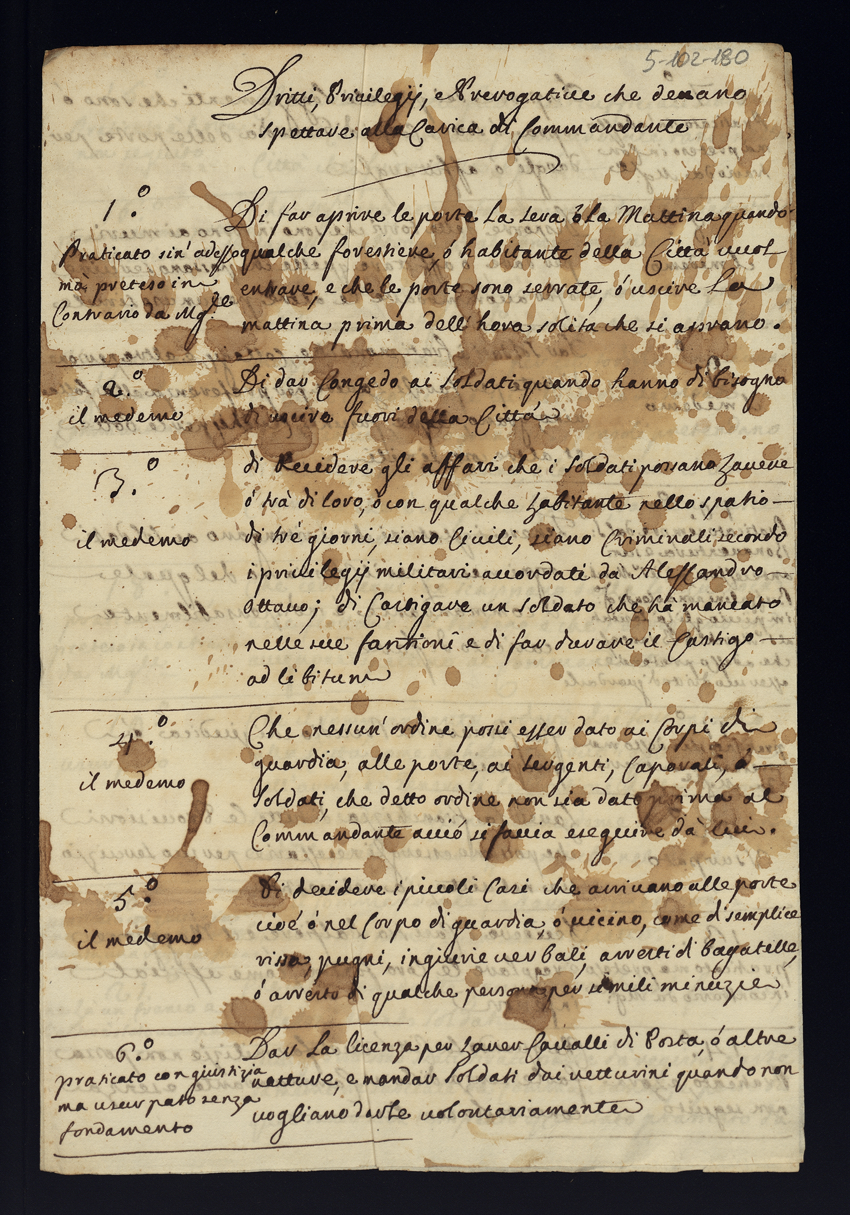 5-102-180
Dritti, Privilegij, e Prerogative che devano
spettare alla Carica di Commandante
1.o
Di far aprire le porte La sera ò La Mattina quando
Praticato sin' adesso
qualche forestiere, ó habitante della Città vuol
mà preteso in
entrare, e che le porte sono serrate, ó uscire La
Contrario da Mg.re
mattina prima dell' hora solita che si aprano.
2.o
Di dar Congedo ai Soldati quando hanno di bisogno
il medemo
di uscire fuori della Città
3.o
di Decidere gli affari che i Soldati possano havere
ó trà di loro, ó con qualche habitante nello spatio
il medemo
di tré giorni, siano Civili, siano Criminali secondo
i privilegij militari accordati da Alessandro
Ottavo; di Castigare un soldato che hà mancato
nelle sue fantioni e di far durare il Castigo
ad libitum
4.o
Che nessun' ordine possi esser dato ai Corpi di
guardia, alle porte, ai sergenti, Caporali, ó
il medemo
Soldati, che detto ordine non sia dato prima al
Commandante acció si faccia eseguire dà lui.
5.o
Di decidere i piccoli Casi che arrivano alle porte
cioé ó nel Corpo di guardia, ó vicino, come di semplice
il medemo
rissa, pugni, ingiurie verbali, arresti di bagatelle,
ó arresto di qualche persona per simili minuzie
6.o
Dar La licenza per haver Cavalli di Posta, ó altre
praticato con giustizia
vetture, e mandar Soldati dai vetturini quando non
ma usurpato senza
vogliano darle volontariamente
fondamento